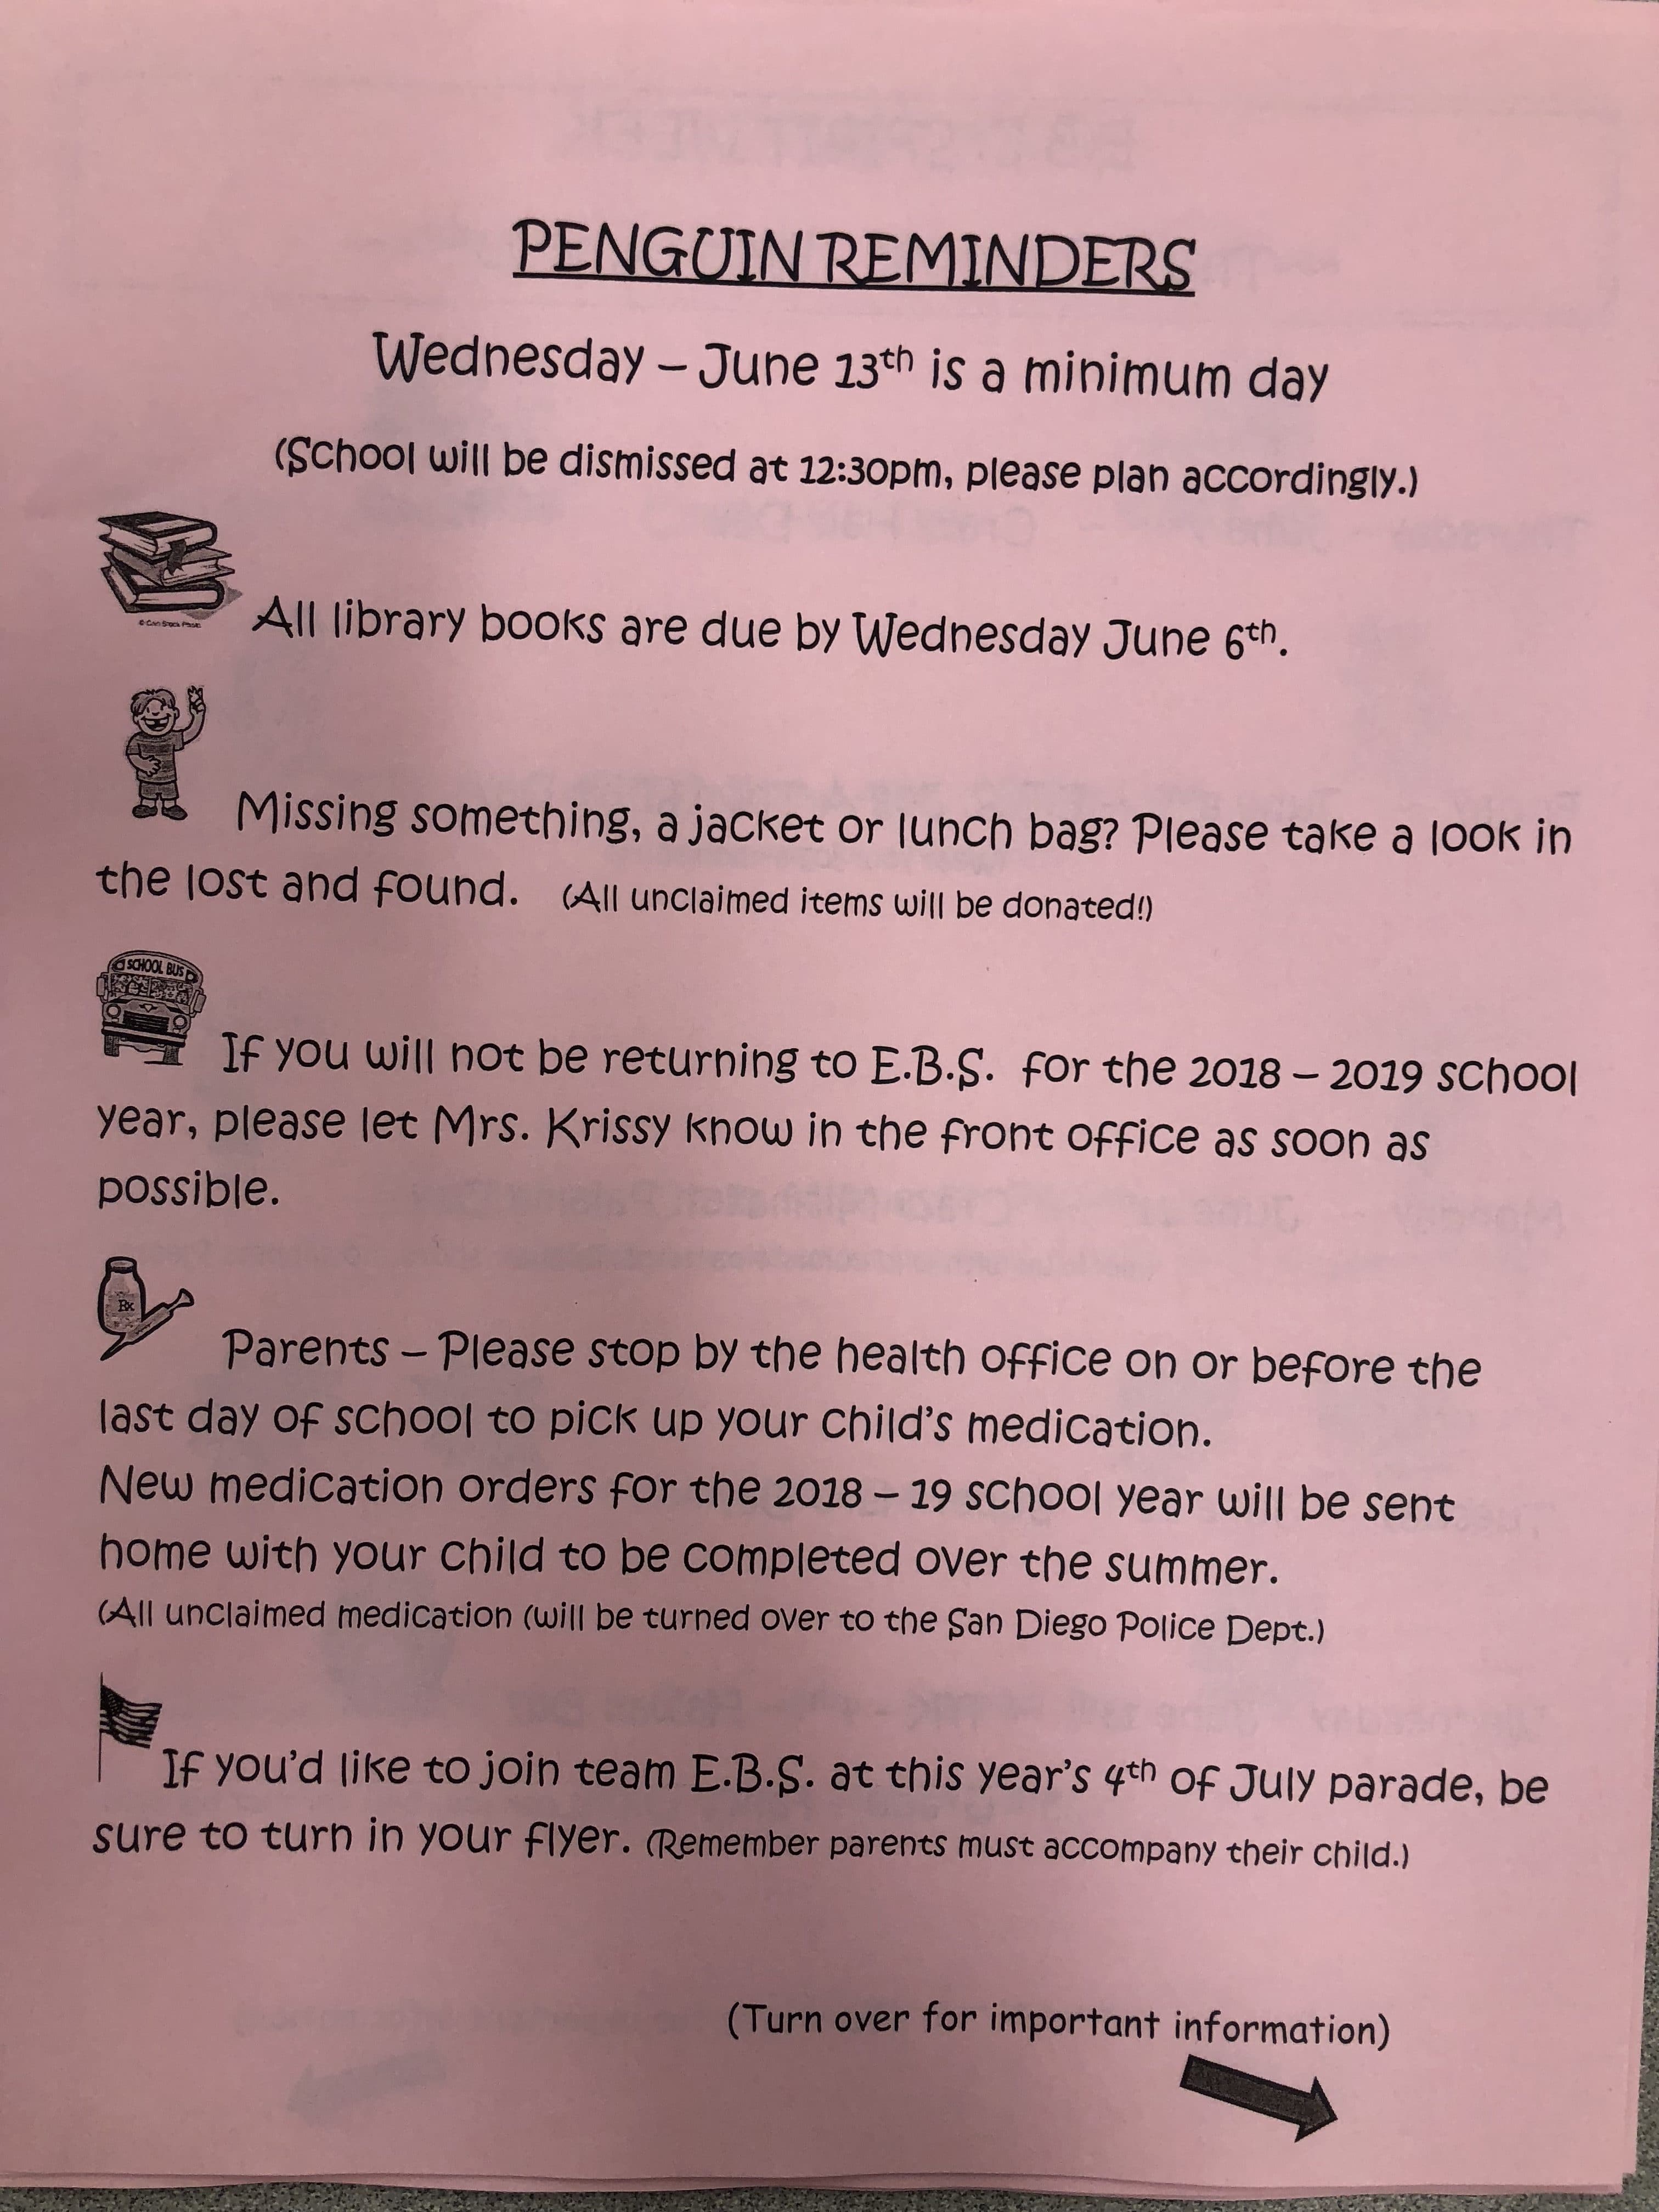 PENGUIN REMINDERS
Wednesday – June 13th is a minimum day
(School will be dismissed at 12:30pm, please plan accordingly.)
© Can Stock Photo
All library books are due by Wednesday June 6th.
Missing something, a jacket or lunch bag? Please take a look in
the lost and found. (All unclaimed items will be donated!)
SCHOOL BUS
If you will not be returning to E.B.S. for the 2018 – 2019 school
year, please let Mrs. Krissy know in the front office as soon as
possible.
Rx
Parents – Please stop by the health office on or before the
last day of school to pick up your child's medication.
New medication orders for the 2018 – 19 school year will be sent
home with your child to be completed over the summer.
(All unclaimed medication (will be turned over to the San Diego Police Dept.)
If you'd like to join team E.B.S. at this year's 4th of July parade, be
sure to turn in your flyer. (Remember parents must accompany their child.)
(Turn over for important information)